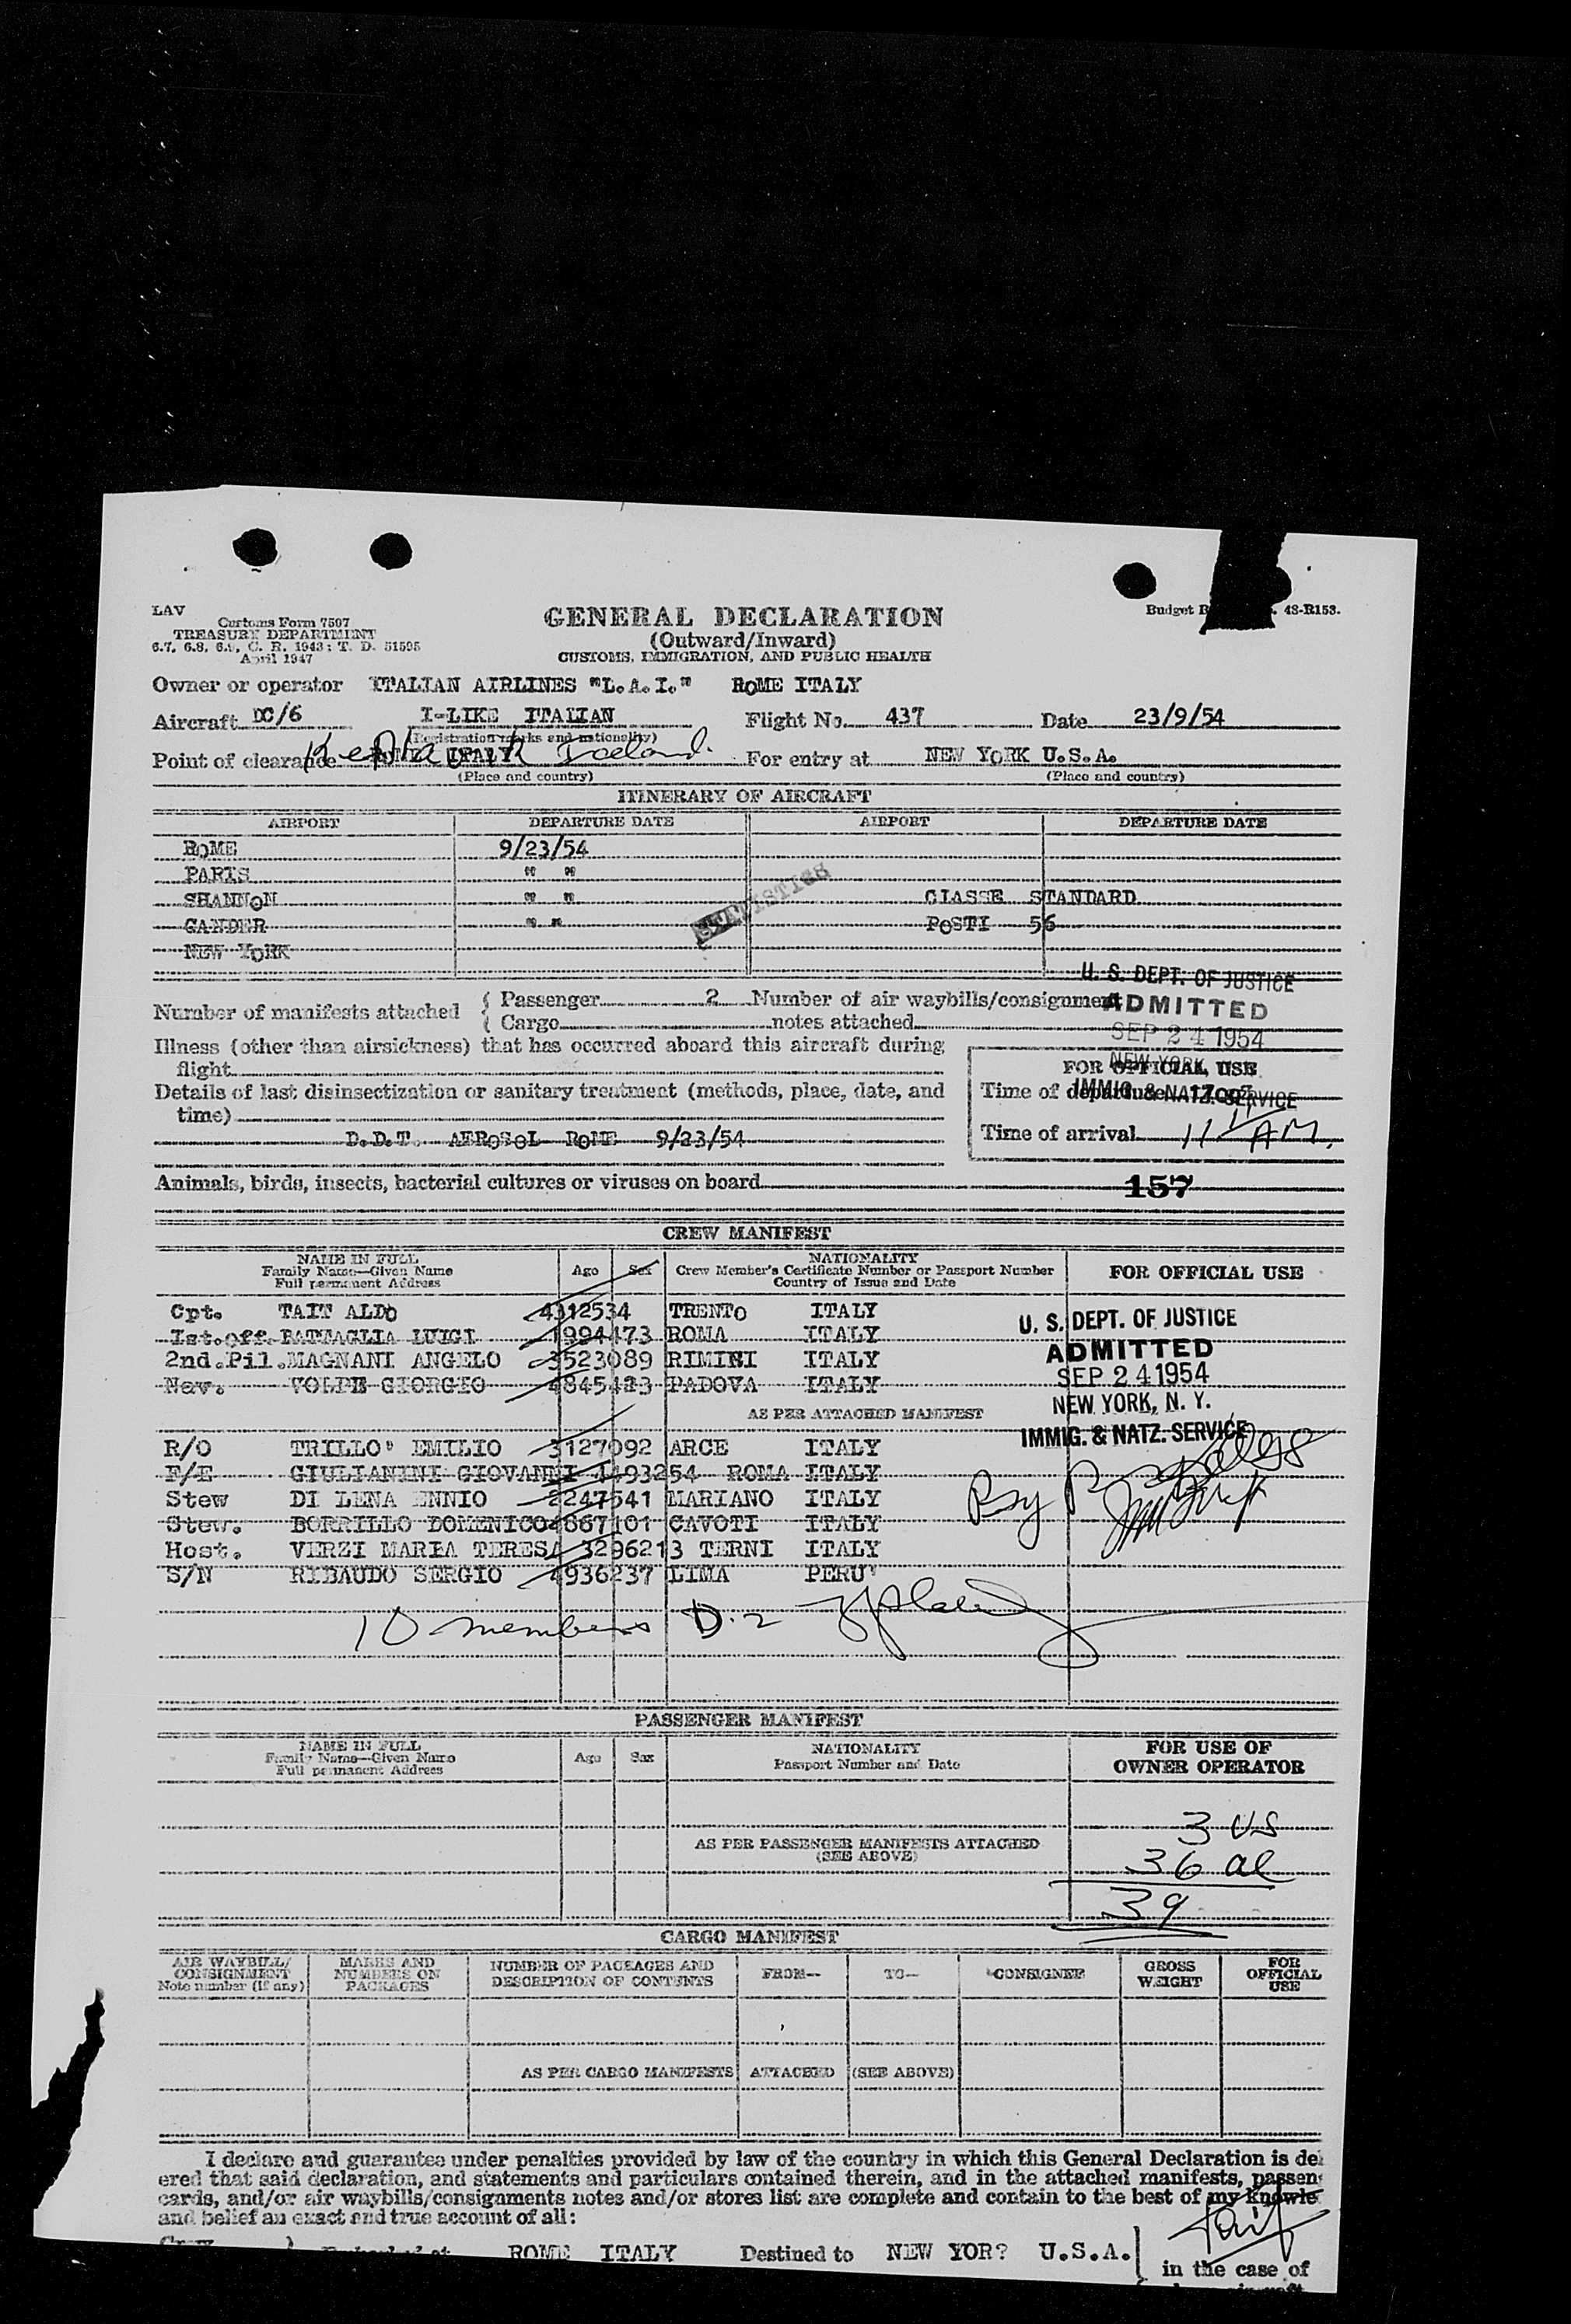 LAV
Customs Form 7507
TREASURY DEPARTMENT
6.7, 6.8, 6.9, C. R. 1943; T. D. 51595
April 1947
GENERAL DECLARATION
(Outward/Inward)
CUSTOMS, IMMIGRATION, AND PUBLIC HEALTH
Budget B 48-R153.
Owner or operator ITALIAN AIRLINES "L.A.I." ROME ITALY
Aircraft DC/6 I-LIKE ITALIAN Flight No. 437 Date 23/9/54
(Registration marks and nationality)
Point of clearance Keflavik Iceland. ROME ITALY For entry at NEW YORK U.S.A.
(Place and country) (Place and country)
ITINERARY OF AIRCRAFT
AIRPORT DEPARTURE DATE AIRPORT DEPARTURE DATE
ROME 9/23/54
PARIS " "
SHANNON " " CLASSE STANDARD
GANDER " " POSTI 56
NEW YORK
STATISTICS
U. S. DEPT. OF JUSTICE
ADMITTED
SEP 24 1954
NEW YORK,
IMMIG. & NATZ. SERVICE
Number of manifests attached { Passenger 2 Number of air waybills/consignment
Cargo notes attached
Illness (other than airsickness) that has occurred aboard this aircraft during
flight
Details of last disinsectization or sanitary treatment (methods, place, date, and
time)
D.D.T. AEROSOL ROME 9/23/54
FOR OFFICIAL USE
Time of departure
Time of arrival 11 AM.
Animals, birds, insects, bacterial cultures or viruses on board
157
CREW MANIFEST
NAME IN FULL
Family Name—Given Name
Full permanent Address
Age Sex
NATIONALITY
Crew Member's Certificate Number or Passport Number
Country of Issue and Date
FOR OFFICIAL USE
Cpt. TAIT ALDO 4312534 TRENTO ITALY
Ist.off. BATTAGLIA LUIGI 1994473 ROMA ITALY
2nd.Pil. MAGNANI ANGELO 3523089 RIMINI ITALY
Nav. VOLPE GIORGIO 4845423 PADOVA ITALY
AS PER ATTACHED MANIFEST
R/O TRILLO' EMILIO 3127092 ARCE ITALY
F/E GIULIANINI GIOVANNI 4493254 ROMA ITALY
Stew DI LENA ENNIO 2247541 MARIANO ITALY
Stew. BORRILLO DOMENICO 4867101 CAVOTI ITALY
Host. VERZI MARIA TERESA 3296213 TERNI ITALY
S/N RIBAUDO SERGIO 4936237 LIMA PERU'
U. S. DEPT. OF JUSTICE
ADMITTED
SEP 24 1954
NEW YORK, N. Y.
IMMIG. & NATZ. SERVICE
10 members D.2
PASSENGER MANIFEST
NAME IN FULL
Family Name—Given Name
Full permanent Address
Age Sex
NATIONALITY
Passport Number and Date
FOR USE OF
OWNER OPERATOR
AS PER PASSENGER MANIFESTS ATTACHED
(SEE ABOVE)
3 US
36 al
39
CARGO MANIFEST
AIR WAYBILL/
CONSIGNMENT
Note number (if any)
MARKS AND
NUMBERS ON
PACKAGES
NUMBER OF PACKAGES AND
DESCRIPTION OF CONTENTS
FROM—
TO—
CONSIGNEE
GROSS
WEIGHT
FOR
OFFICIAL
USE
AS PER CARGO MANIFESTS ATTACHED (SEE ABOVE)
I declare and guarantee under penalties provided by law of the country in which this General Declaration is del
ered that said declaration, and statements and particulars contained therein, and in the attached manifests, passen
cards, and/or air waybills/consignments notes and/or stores list are complete and contain to the best of my knowle
and belief an exact and true account of all:
Tait
ROME ITALY Destined to NEW YOR? U.S.A.
in the case of